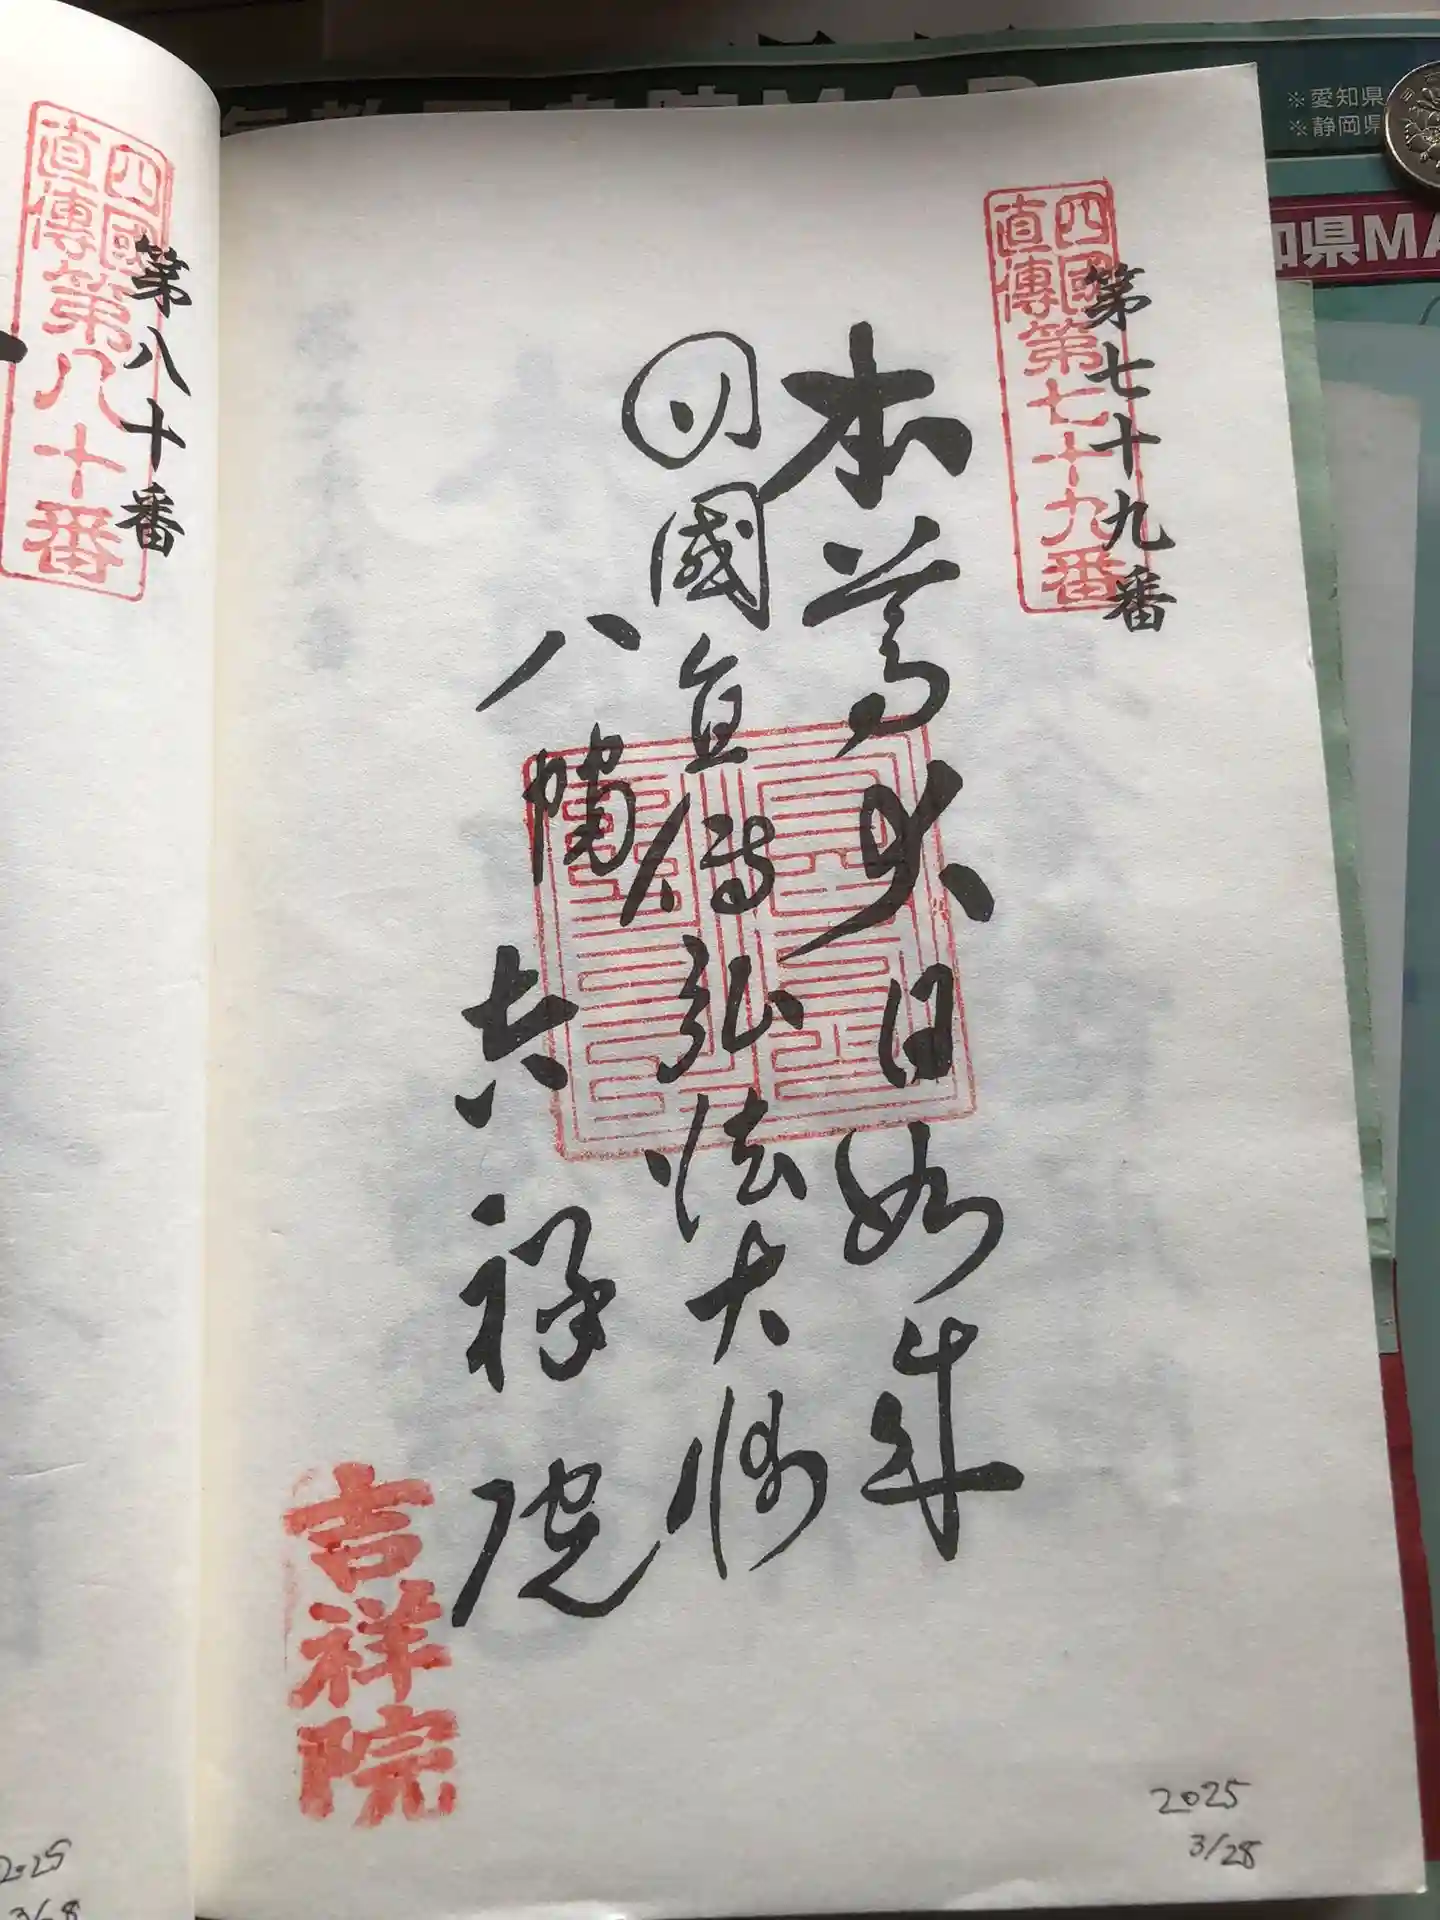 ※愛知県
※静岡県
知県MA
四國
直傳
第七十九番
第七十九番
本尊大日如来
四國直傳弘法大師
八幡
吉祥院
吉祥院
2025
3/28
四國
直傳
第八十番
第八十番
2025